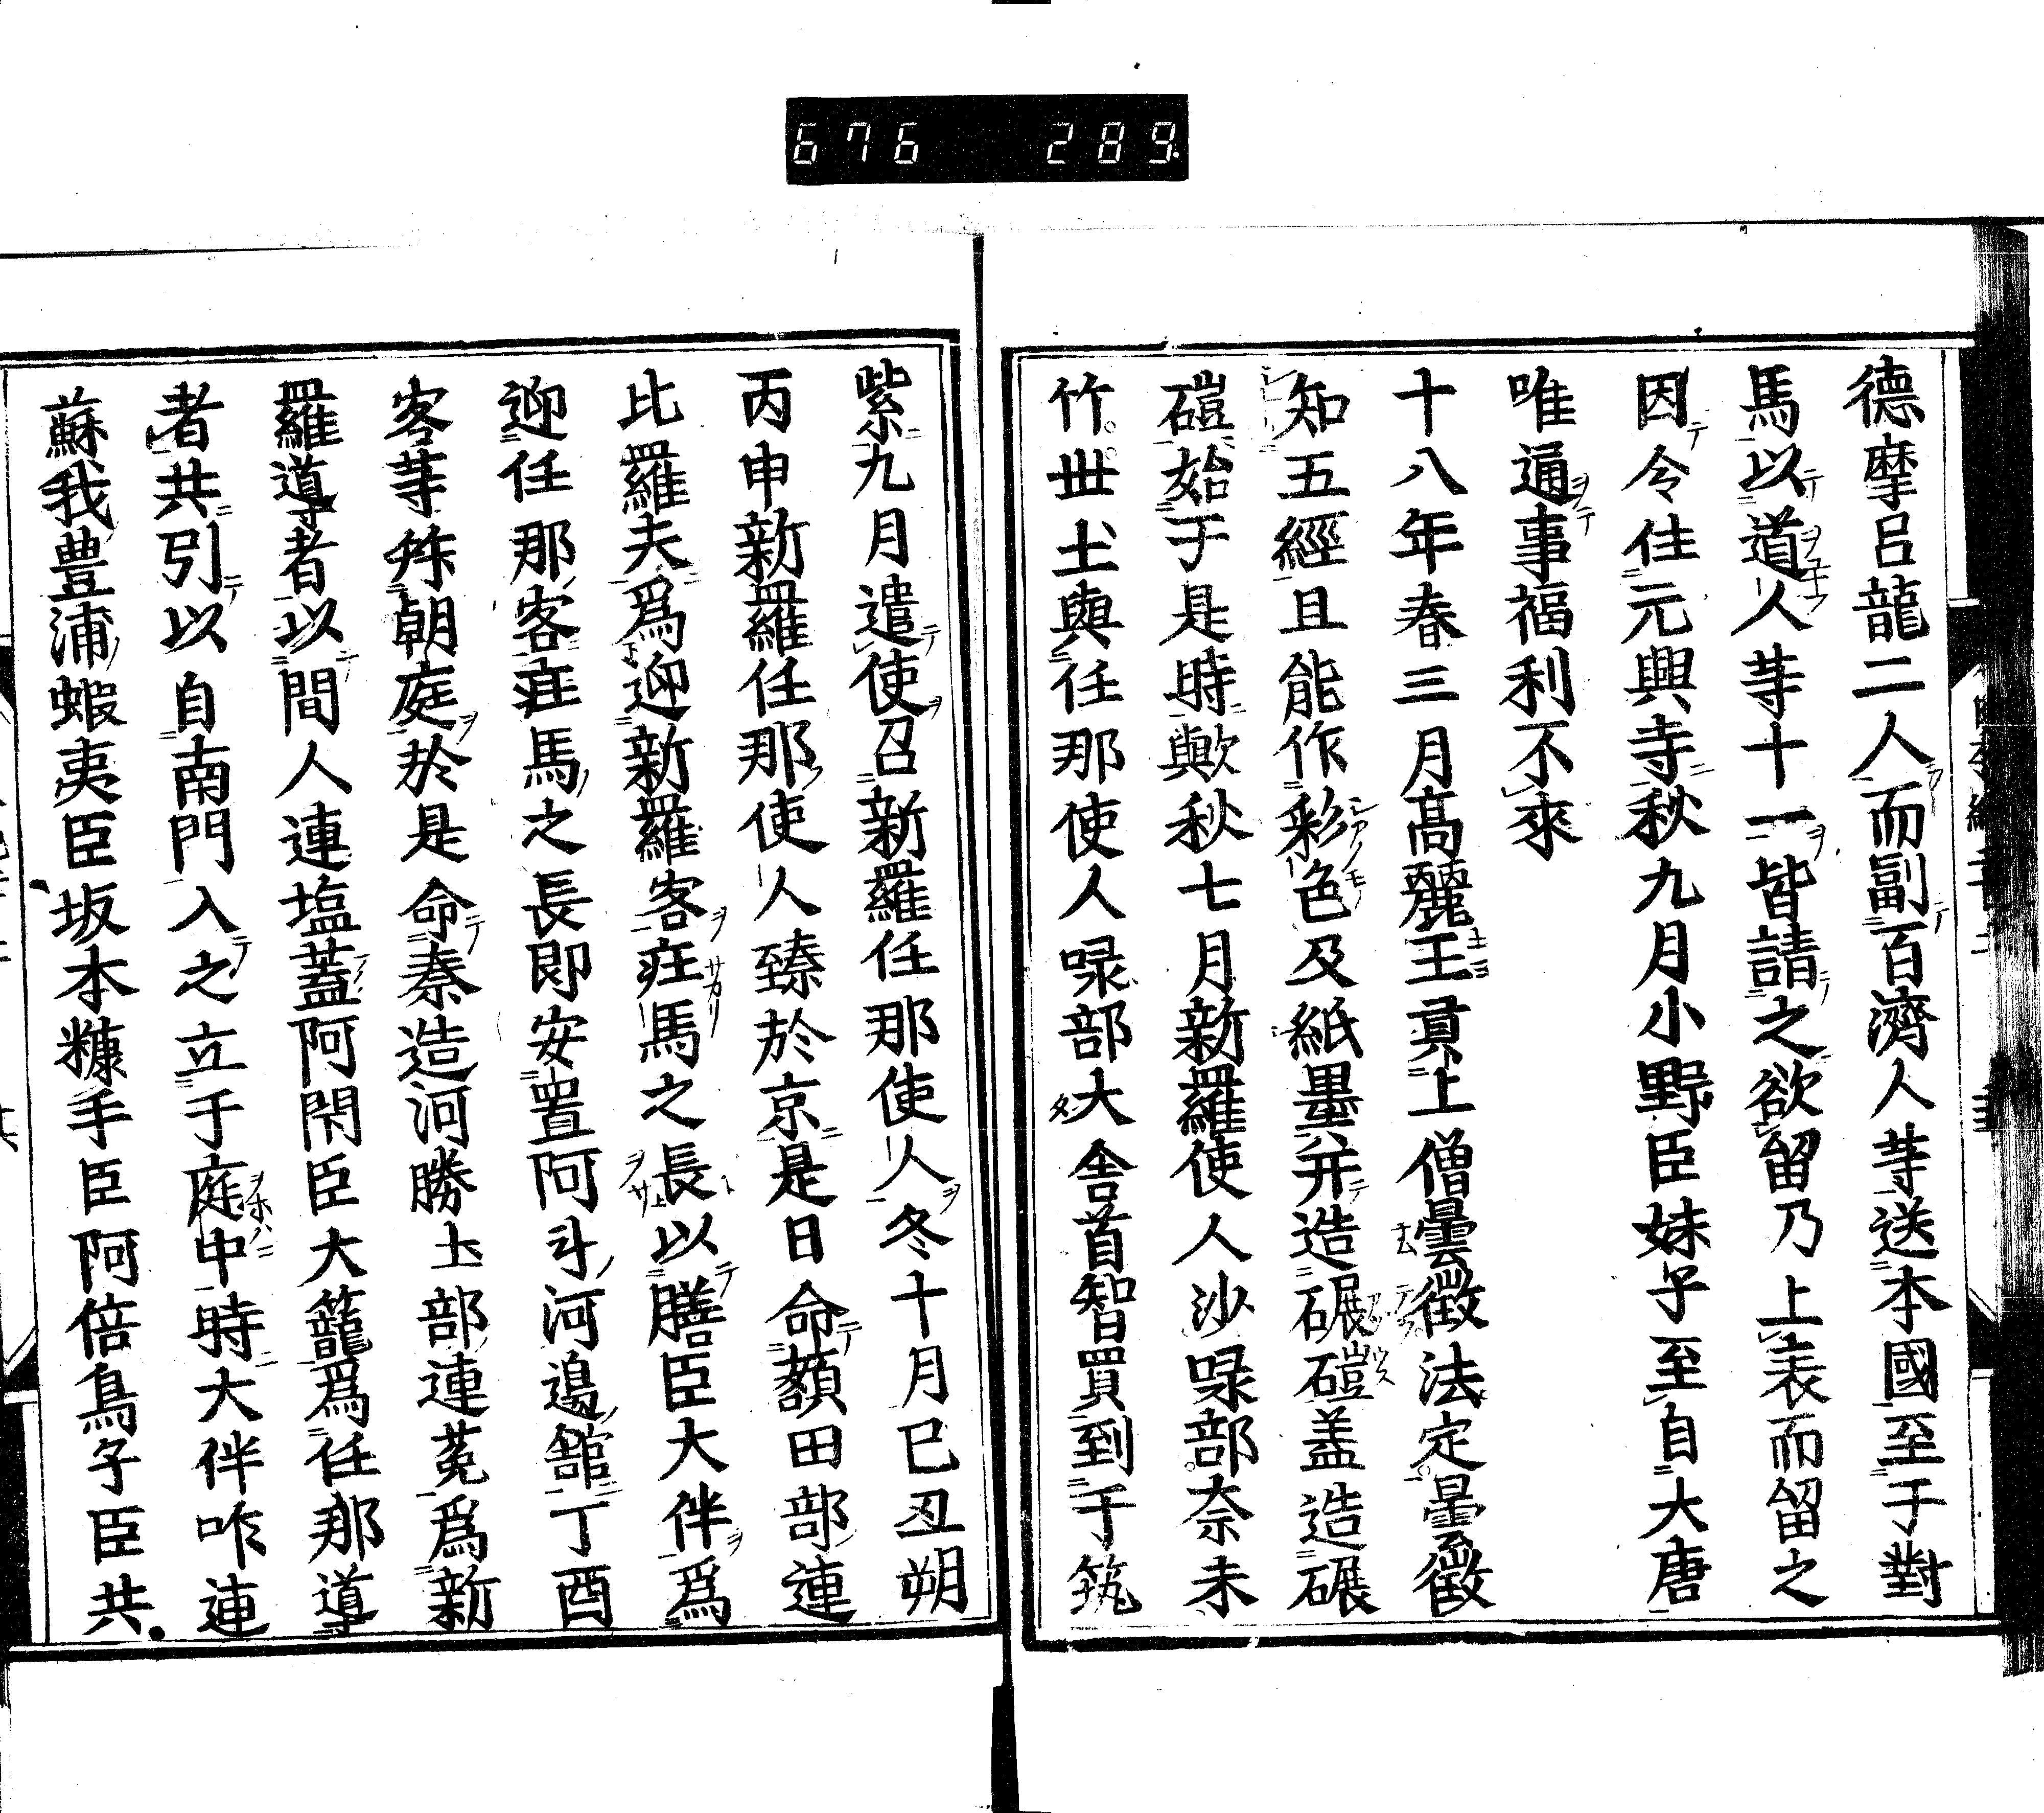 676 289.
德摩呂龍二人而副百濟人等送本國至于對
馬以道人等十一皆請之欲留乃上表而留之
因令住元興寺秋九月小野臣妹子至自大唐
唯通事福利不來
十八年春三月高麗王貢上僧曇徵法定曇徵
知五經且能作彩色及紙墨并造碾磑盖造碾
磑始于是時歟秋七月新羅使人沙㖨部奈末
竹世士與任那使人㖨部大舎首智買到于筑
紫九月遣使召新羅任那使人冬十月己丑朔
丙申新羅任那使人臻於京是日命額田部連
比羅夫爲迎新羅客荘馬之長以膳臣大伴爲
迎任那客荘馬之長即安置阿斗河邊舘丁酉
客等拜朝庭於是命秦造河勝土部連菟爲新
羅導者以間人連塩蓋阿閇臣大籠爲任那導
者共引以自南門入之立于庭中時大伴咋連
蘇我豊浦蝦夷臣坂本糠手臣阿倍鳥子臣共